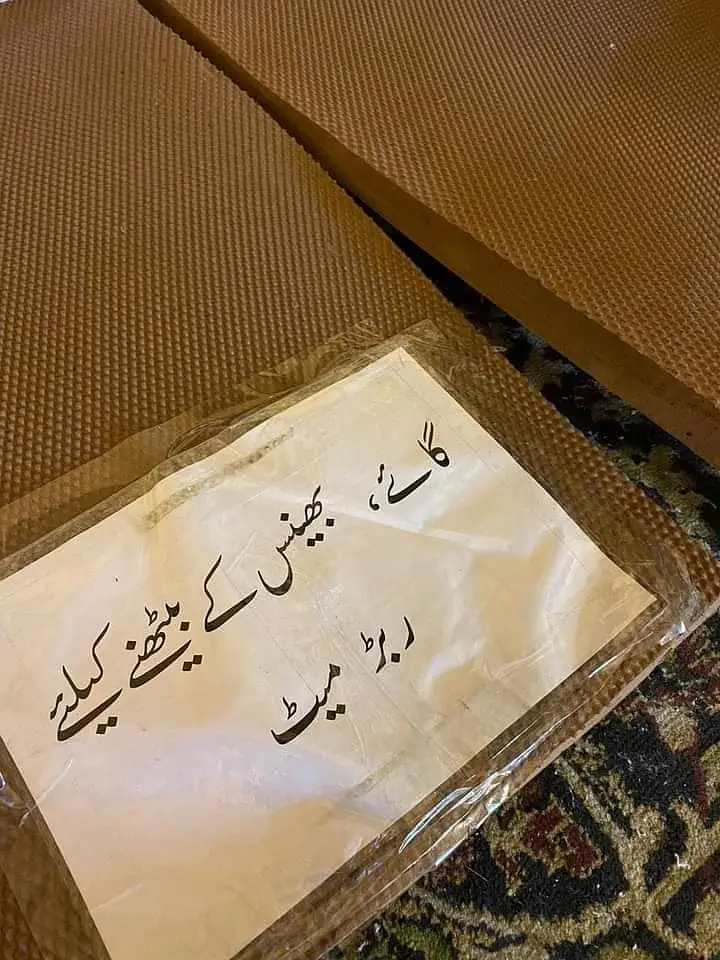 گائے، بھینس کے بیٹھنے کیلئے
ربڑ میٹ